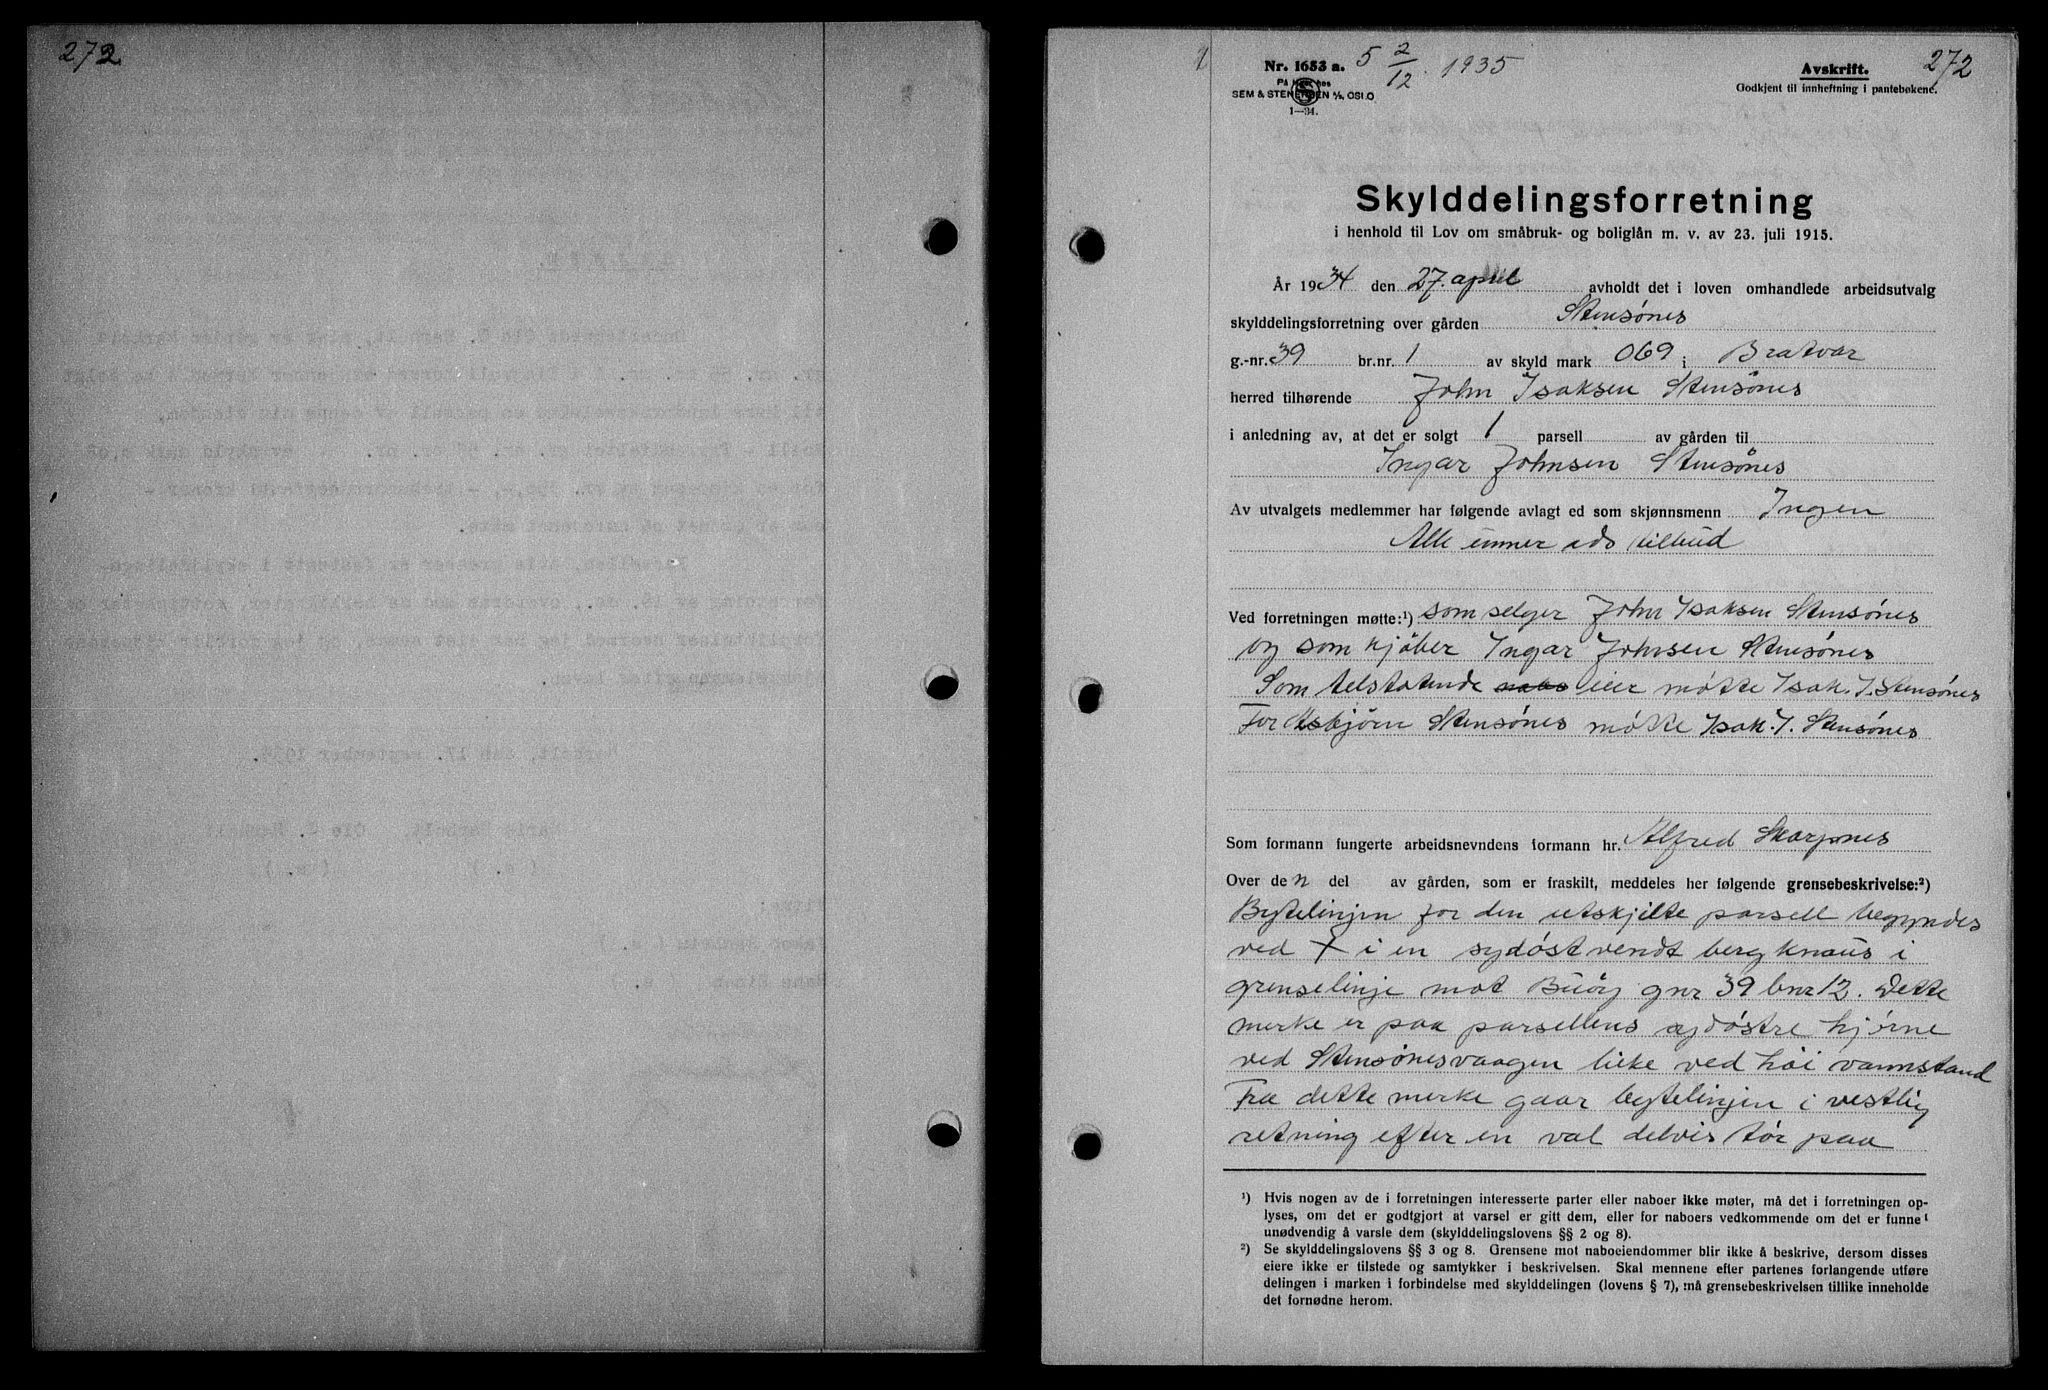 272
Nr. 1653 a. 5 2/12 1935
Avskrift. 272
På lager hos
Godkjent til innheftning i pantebøkene.
SEM & STENERSEN A/S, OSLO
1—34.
Skylddelingsforretning
i henhold til Lov om småbruk- og boliglån m. v. av 23. juli 1915.
År 1934 den 27. april avholdt det i loven omhandlede arbeidsutvalg
skylddelingsforretning over gården Stensønes
g.-nr. 39 br.nr. 1 av skyld mark 069 i Bratvær
herred tilhørende John Isaksen Stensønes
i anledning av, at det er solgt 1 parsell av gården til
Ingar Johnsen Stensønes
Av utvalgets medlemmer har følgende avlagt ed som skjønnsmenn Ingen
Alle unner eds tilbud
Ved forretningen møtte:¹) som selger John Isaksen Stensønes
og som kjøber Ingar Johnsen Stensønes
Som tilstøtende eier møtte Isak. J. Stensønes
For Asbjørn Stensønes møtte Isak. J. Stensønes
Som formann fungerte arbeidsnevndens formann hr. Alfred Skarpnes
Over den del av gården, som er fraskilt, meddeles her følgende grensebeskrivelse:²)
Bytelinjen for den utskjilte parsell begyndes
ved X i en sydøstvendt bergknaus i
grenselinje mot Buøy gnr 39 bnr 12. Dette
merke er paa parsellens sydøstre hjørne
ved Stensønesvaagen like ved høi vannstand
Fra dette merke gaar bytelinjen i vestlig
retning efter en val delvis tør paa
¹) Hvis nogen av de i forretningen interesserte parter eller naboer ikke møter, må det i forretningen op-
lyses, om det er godtgjort at varsel er gitt dem, eller for naboers vedkommende om det er funnet
unødvendig å varsle dem (skylddelingslovens §§ 2 og 8).
²) Se skylddelingslovens §§ 3 og 8. Grensene mot naboeiendommer blir ikke å beskrive, dersom disses
eiere ikke er tilstede og samtykker i beskrivelsen. Skal mennene efter partenes forlangende utføre
delingen i marken i forbindelse med skylddelingen (lovens § 7), må grensebeskrivelsen tillike inneholde
det fornødne herom.